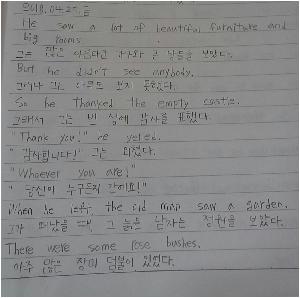 2018.04.27.금
He saw a lot of beautiful furniture and
big rooms
그는 많은 아름다운 가구와 큰 방들을 보았다.
But he didn't see anybody.
그러나 그는 아무도 보지 못했다.
So he thanked the empty castle.
그래서 그는 빈 성에 감사를 표했다.
"Thank you!" he yelled.
"감사합니다!" 그는 외쳤다.
"Whoever you are!"
"당신이 누구든지 간에요!"
When he left, the old man saw a garden.
그가 떠났을 때, 그 늙은 남자는 정원을 보았다.
There were some rose bushes.
아주 많은 장미 덤불이 있었다.